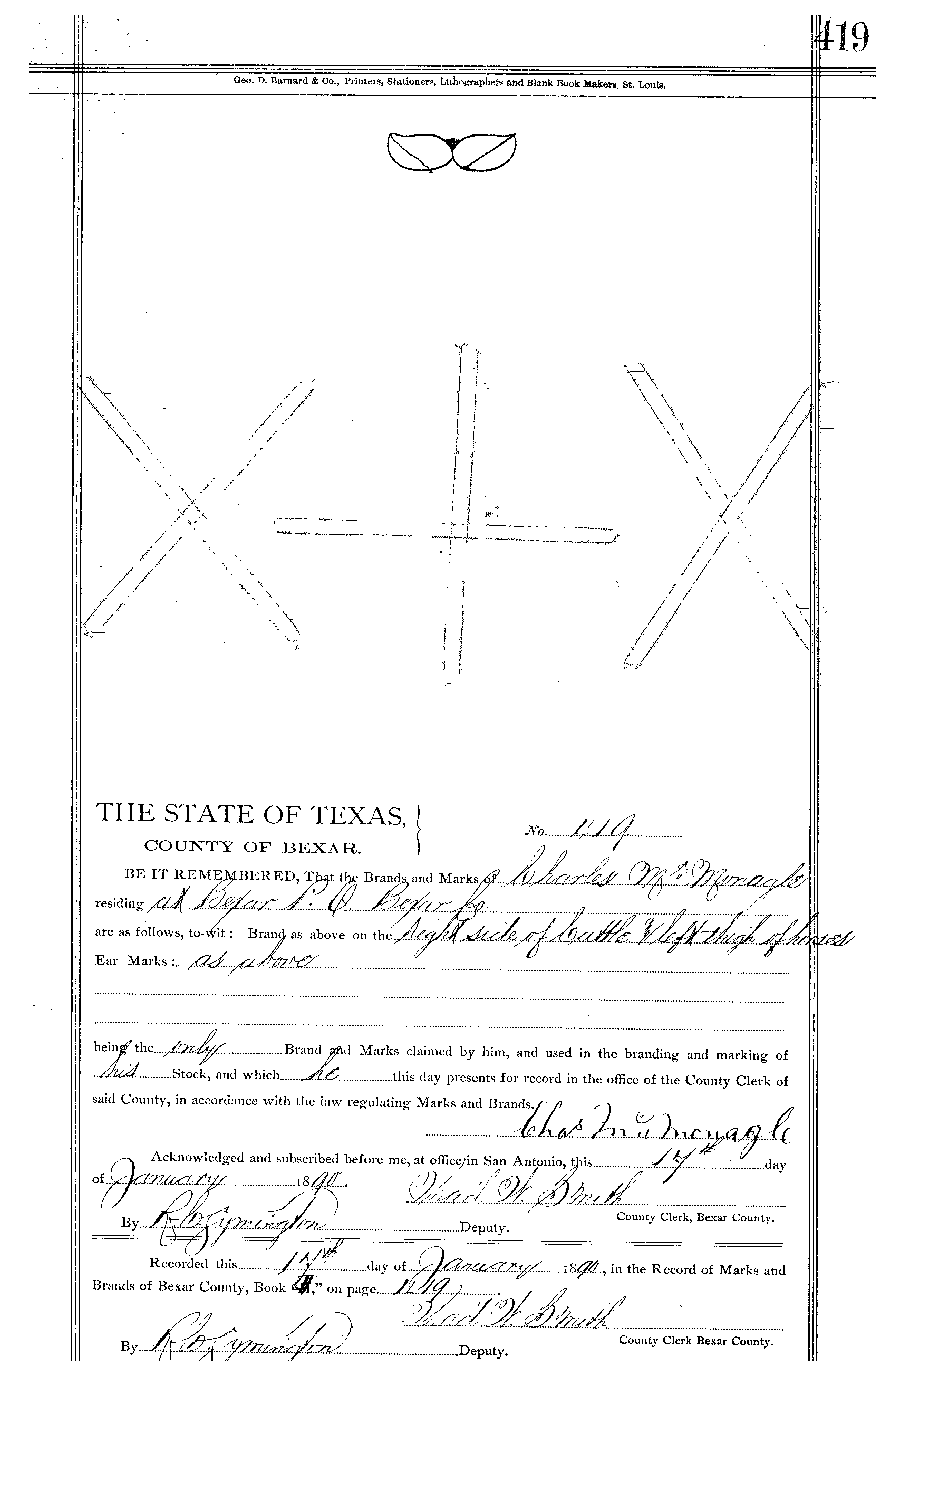 419
Geo. D. Barnard & Co., Printers, Stationers, Lithographers and Blank Book Makers, St. Louis.
THE STATE OF TEXAS,
COUNTY OF BEXAR.
No. 419
BE IT REMEMBERED, That the Brands and Marks of Charles McMonagle
residing at Bexar P. O. Bexar Co
are as follows, to-wit: Brand as above on the right side of Cattle & left thigh of horses
Ear Marks: as above
being the only Brand and Marks claimed by him, and used in the branding and marking of
his Stock, and which he this day presents for record in the office of the County Clerk of
said County, in accordance with the law regulating Marks and Brands.
Chas McMonagle
Acknowledged and subscribed before me, at office in San Antonio, this 17th day
of January 1890. Thad W. Smith
County Clerk, Bexar County.
By Deputy.
Recorded this 17th day of January 1890, in the Record of Marks and
Brands of Bexar County, Book " on page 419
Thad W. Smith
County Clerk Bexar County.
By Deputy.